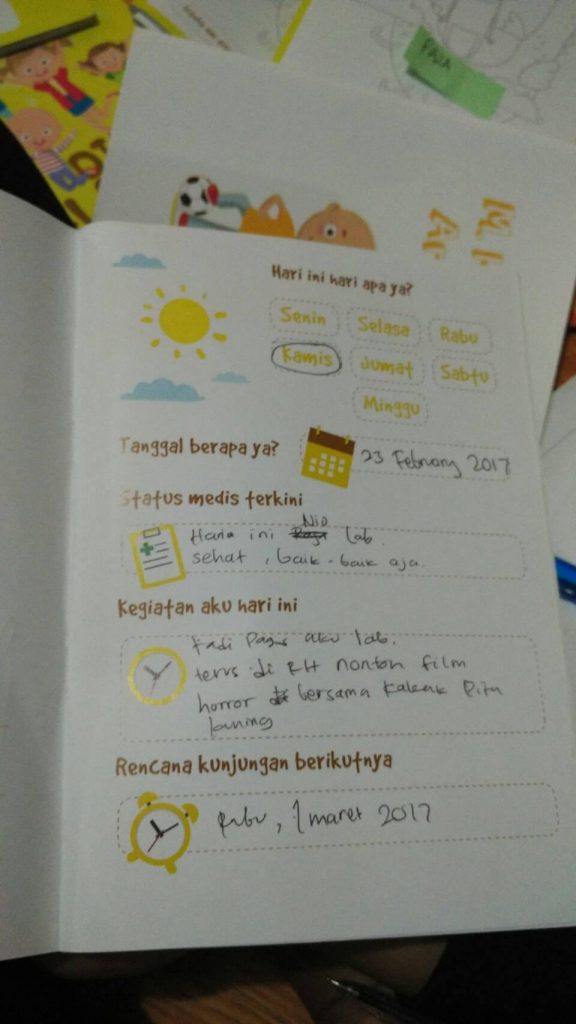 FAIA
Hari ini hari apa ya?
Senin Selasa Rabu
Kamis Jumat Sabtu
Minggu
Tanggal berapa ya?
23 February 2017
Status medis terkini
Nio
Haria ini lab.
sehat, baik-baik aja.
Kegiatan aku hari ini
tadi Pagi aku lab.
terus di RH nonton film
horror bersama Kakak Pita
kuning
Rencana kunjungan berikutnya
Rabu, 1 maret 2017